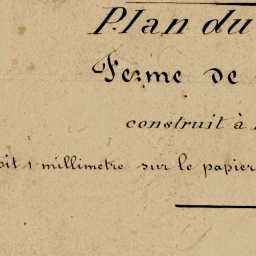 Plan du
Ferme de
construit à
oit 1 millimetre sur le papier